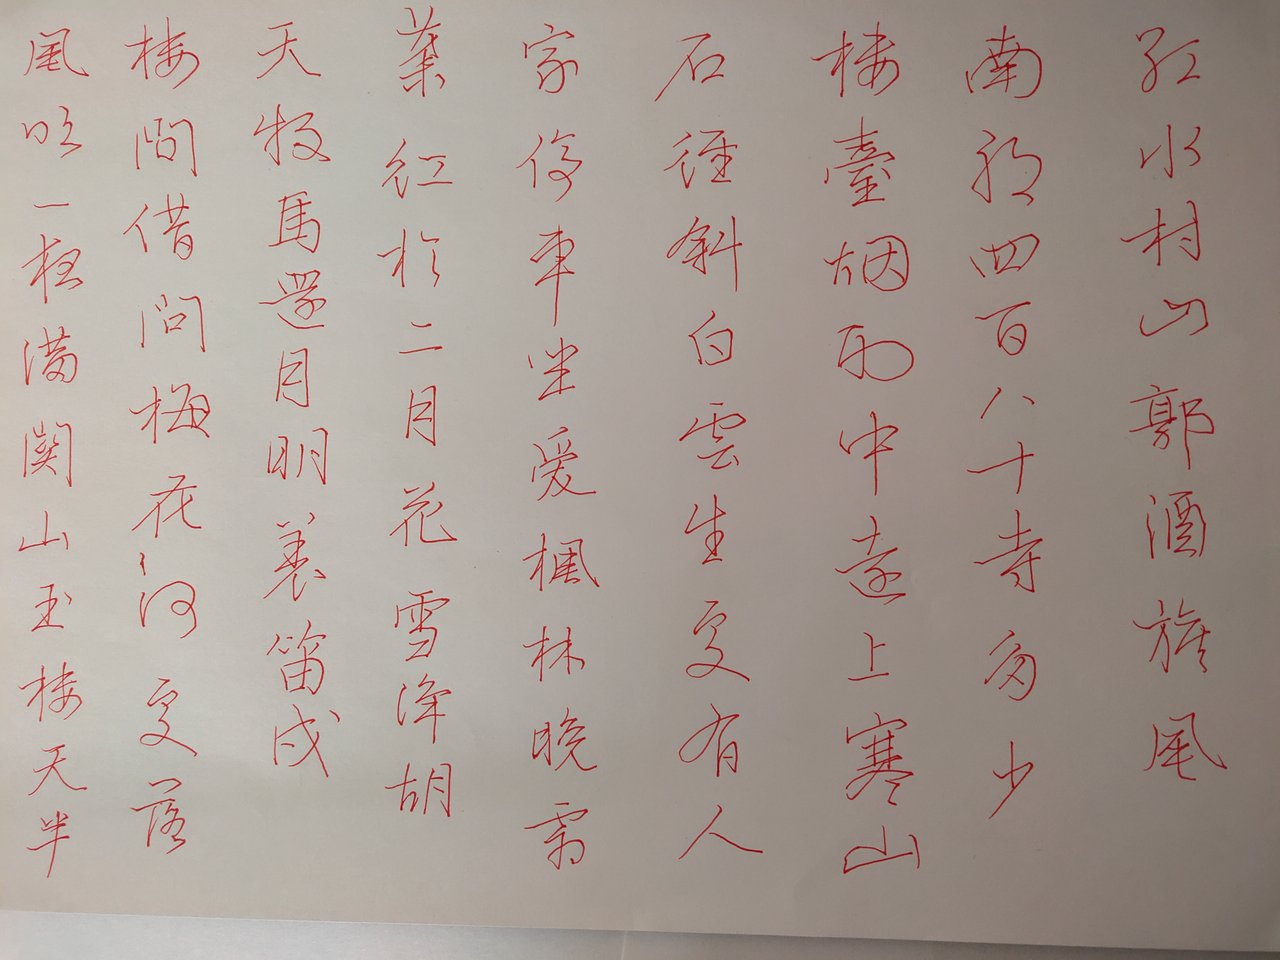 红水村山郭酒旗風
南朝四百八十寺多少
楼臺烟雨中遠上寒山
石徑斜白雲生處有人
家停車坐爱楓林晚霜
葉紅於二月花雪净胡
天牧馬還月明羌笛戍
楼間借問梅花何處落
風吹一夜满關山玉楼天半